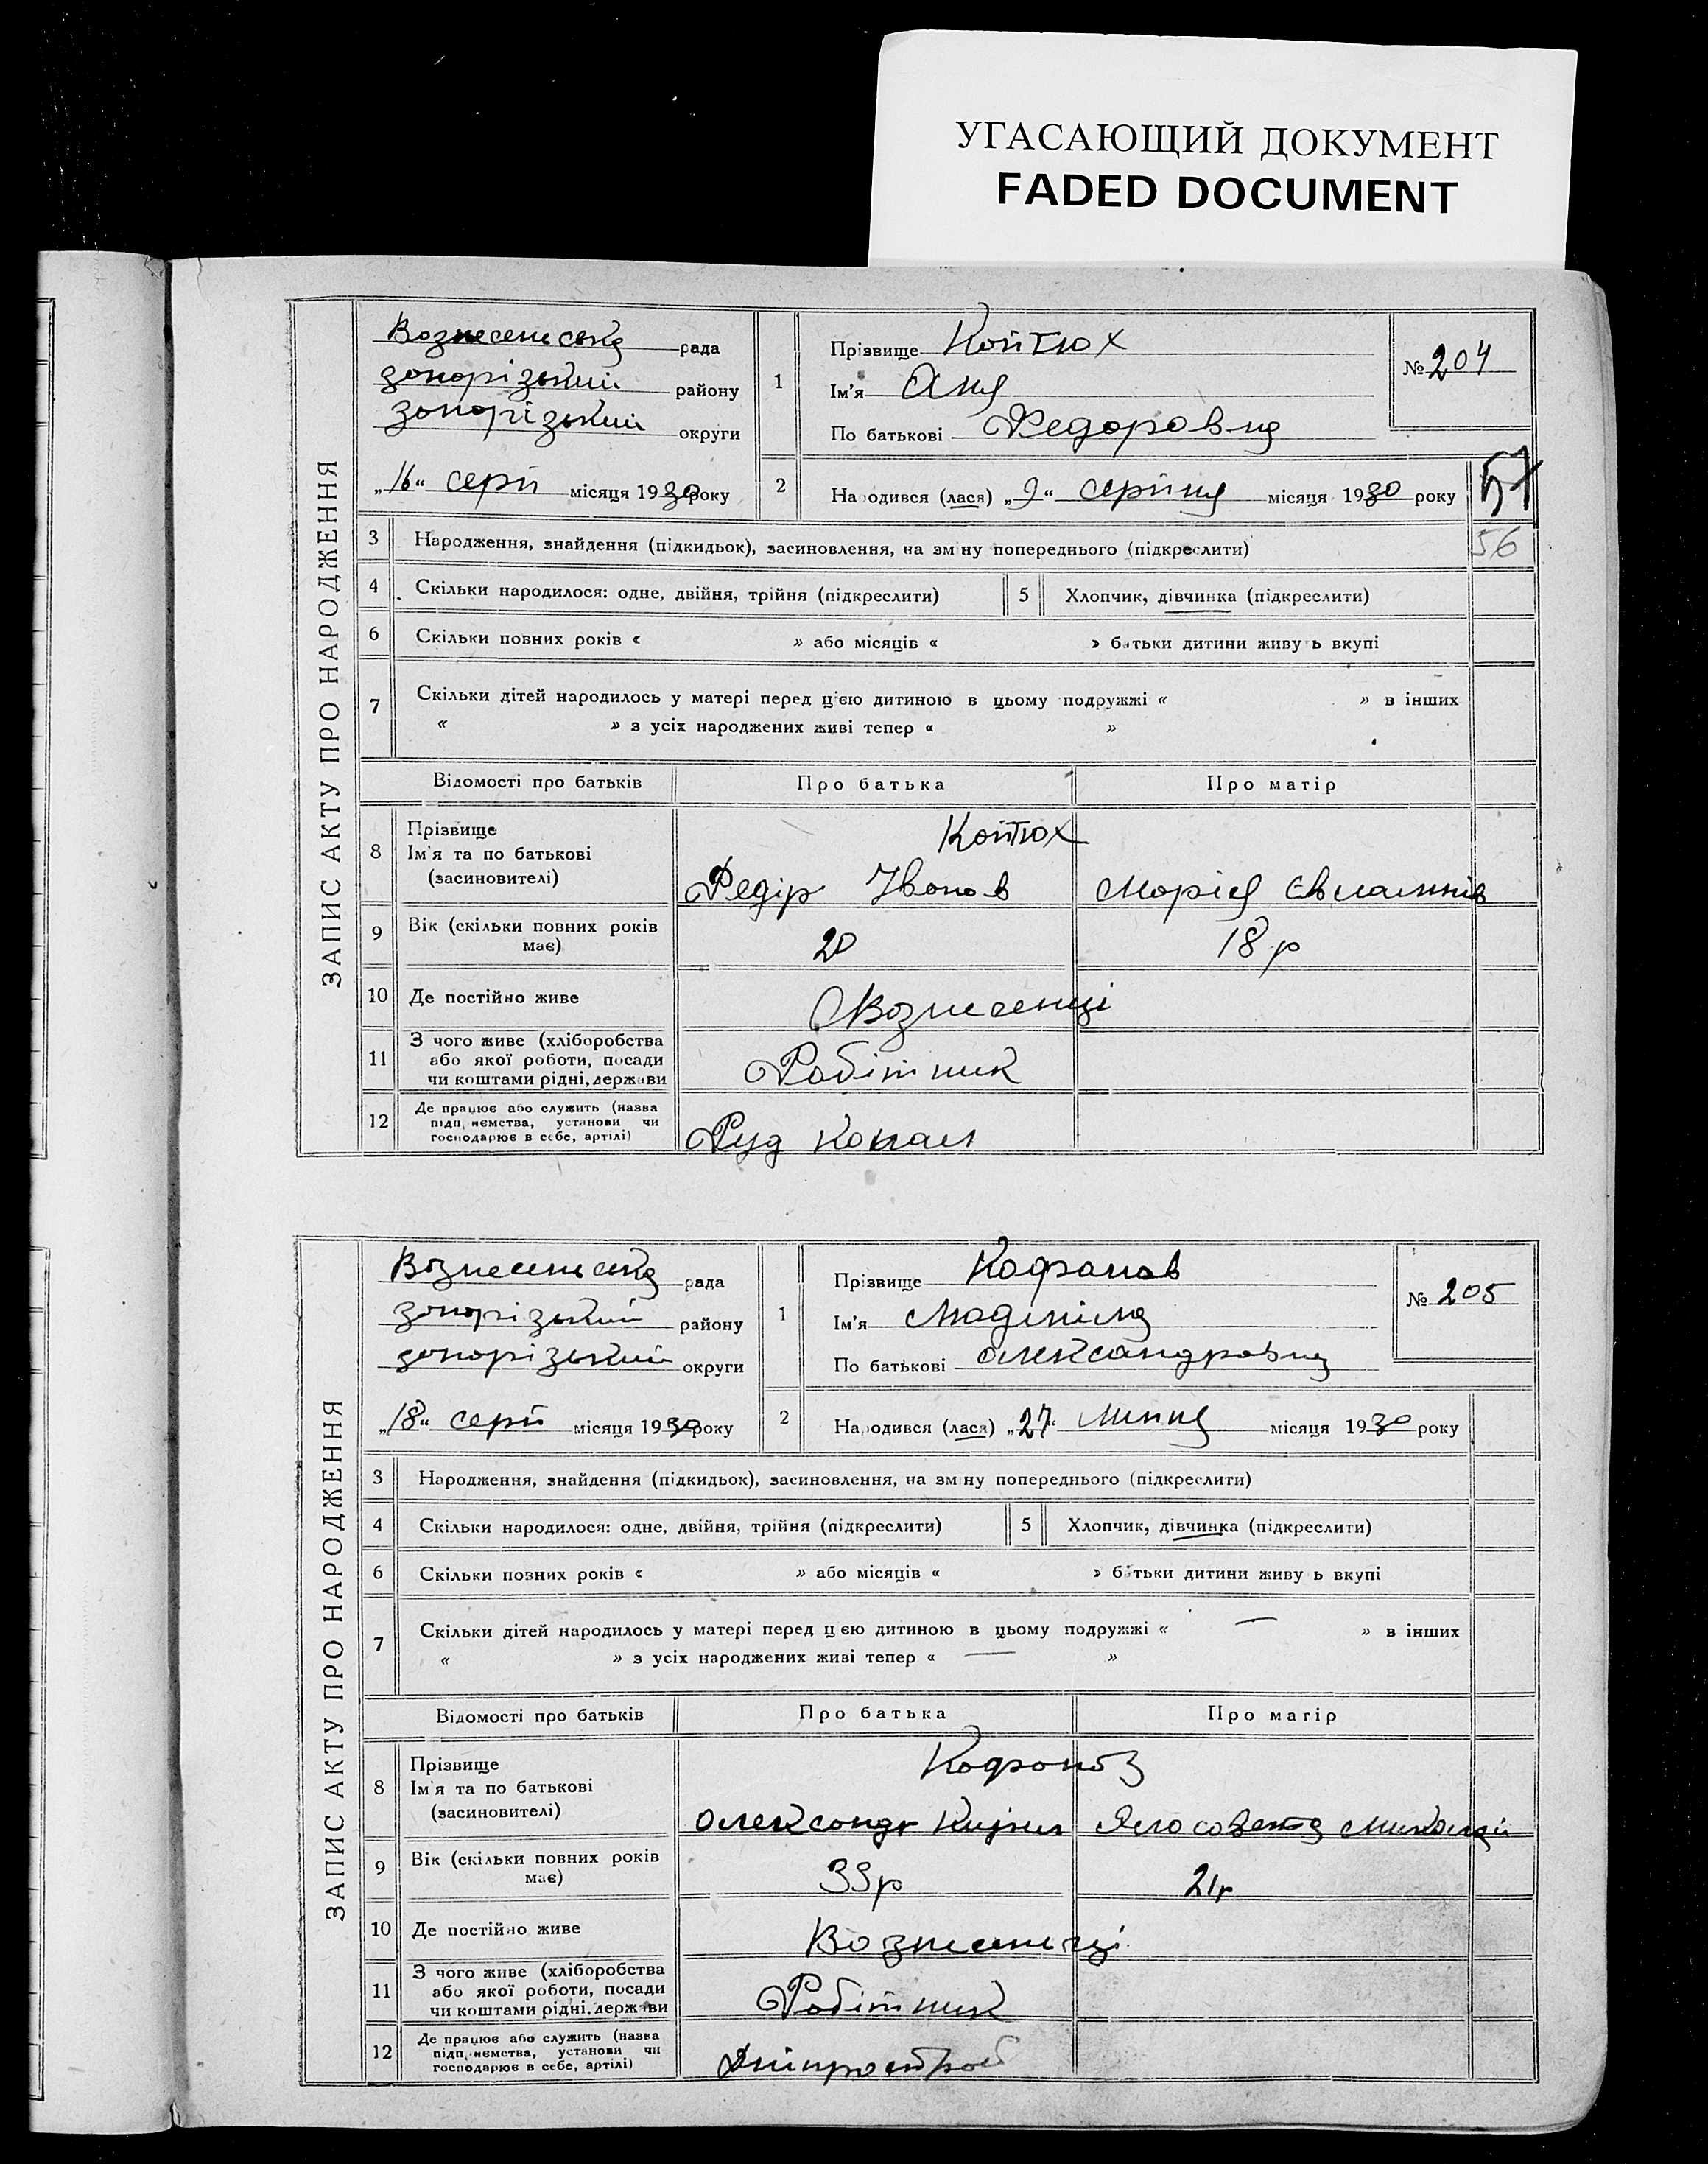 УГАСАЮЩИЙ ДОКУМЕНТ
FADED DOCUMENT
ЗАПИС АКТУ ПРО НАРОДЖЕННЯ
Вознесенська рада
запорізький району
запорізький округи
„16“ серп місяця 1930 року
1
Прізвище Койтюх
Ім'я Аня
По батькові Федоровна
№ 204
2
Народився (лася) „9“ серпня місяця 1930 року
57
56
3 Народження, знайдення (підкидьок), засиновлення, на зміну попереднього (підкреслити)
4 Скільки народилося: одне, двійня, трійня (підкреслити) 5 Хлопчик, дівчинка (підкреслити)
6 Скільки повних років « » або місяців « » батьки дитини живуть вкупі
7 Скільки дітей народилось у матері перед цією дитиною в цьому подружжі « » в інших
« » з усіх народжених живі тепер « »
Відомості про батьків Про батька Про матір
8 Прізвище
Ім'я та по батькові
(засиновителі)
Койтюх
Федір Іванов Марія
9 Вік (скільки повних років має) 20 18 р
10 Де постійно живе Вознесенці
11 З чого живе (хліборобства
або якої роботи, посади
чи коштами рідні, держави
Робітник
12 Де працює або служить (назва
підприємства, установи чи
господарює в себе, артілі)
Руд Копал
ЗАПИС АКТУ ПРО НАРОДЖЕННЯ
Вознесенська рада
запорізький району
запорізький округи
„18“ серп місяця 1930 року
1
Прізвище Кафанов
Ім'я
По батькові Олександровна
№ 205
2
Народився (лася) „27“ липня місяця 1930 року
3 Народження, знайдення (підкидьок), засиновлення, на зміну попереднього (підкреслити)
4 Скільки народилося: одне, двійня, трійня (підкреслити) 5 Хлопчик, дівчинка (підкреслити)
6 Скільки повних років « » або місяців « » батьки дитини живуть вкупі
7 Скільки дітей народилось у матері перед цією дитиною в цьому подружжі « — » в інших
« » з усіх народжених живі тепер « — »
Відомості про батьків Про батька Про матір
8 Прізвище
Ім'я та по батькові
(засиновителі)
Кафанов
Олександр Кирил Миколай
9 Вік (скільки повних років має) 33р 21р
10 Де постійно живе Вознесенці
11 З чого живе (хліборобства
або якої роботи, посади
чи коштами рідні, держави
Робітник
12 Де працює або служить (назва
підприємства, установи чи
господарює в себе, артілі)
Дніпрострой